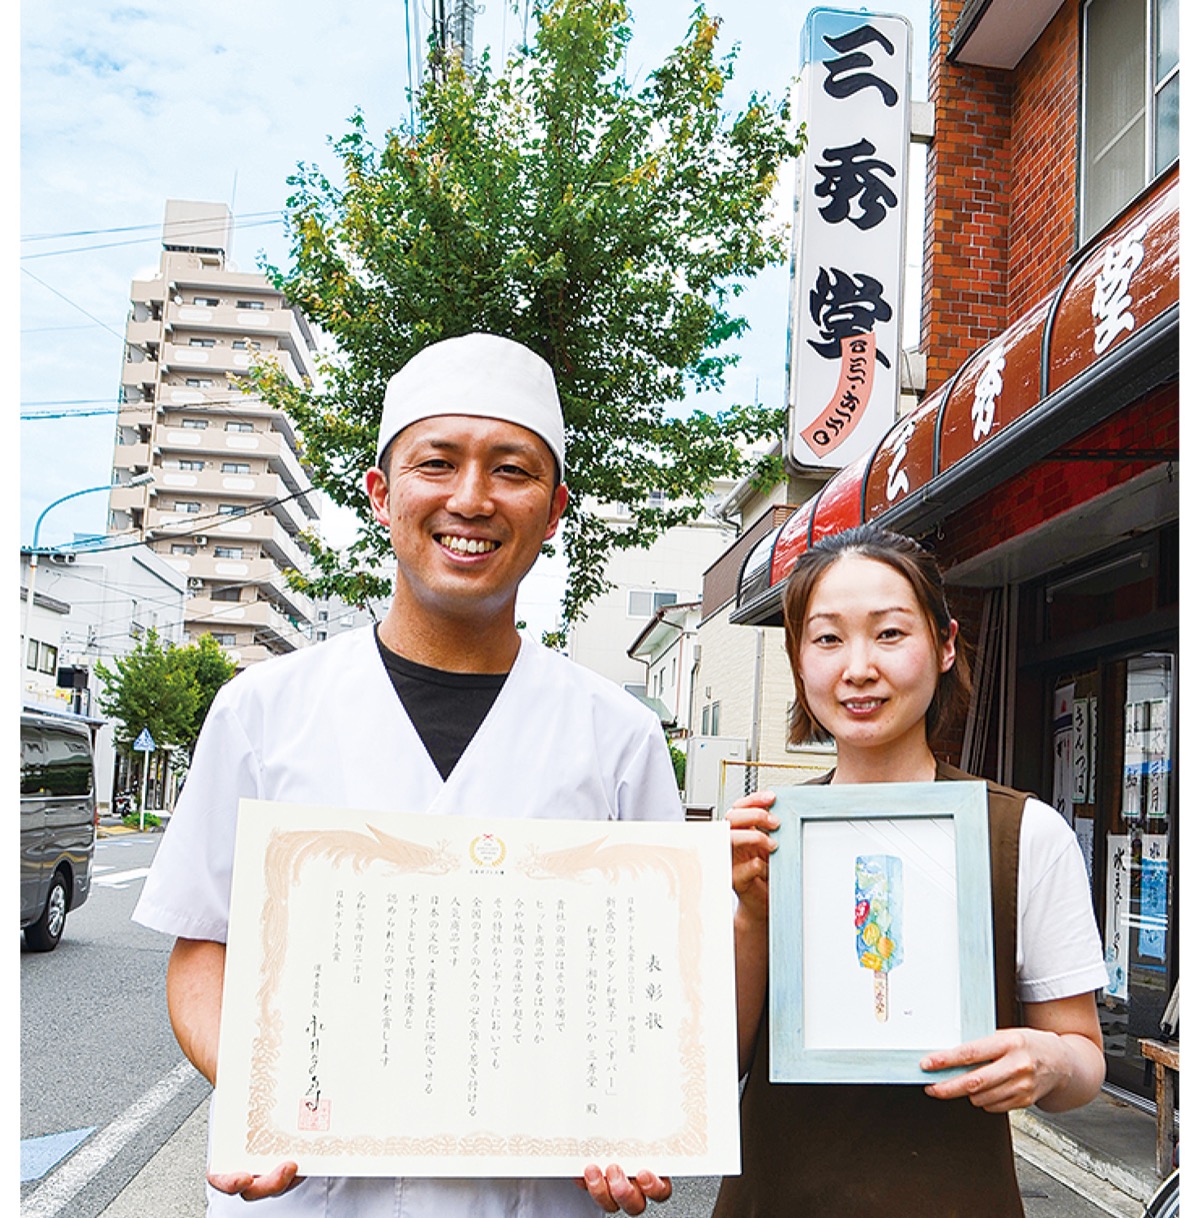 三秀堂
三秀堂
表彰状
日本ギフト大賞2021 神奈川賞
新食感のモダン和菓子「くずバー」
和菓子 湘南ひらつか 三秀堂 殿
貴社の商品は各々の市場で
ヒット商品であるばかりか
今や地域の名産品を超えて
その特性からギフトにおいても
全国の多くの人々の心を強く惹き付ける
人気商品です
日本の文化・産業を更に深化させる
ギフトとして特に優秀と
認められたのでこれを賞します
令和三年四月二十日
日本ギフト大賞
選考委員長
三秀堂
きんつば